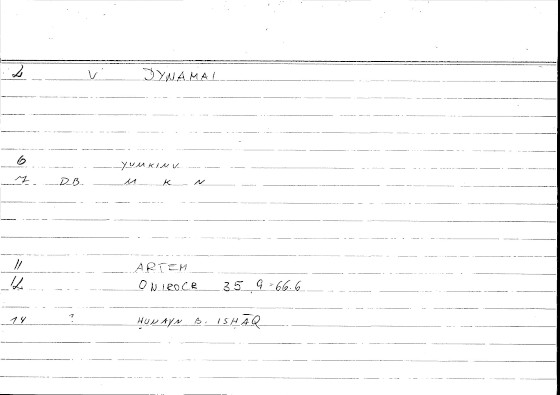 2 V DYNAMAI
6 YUMKINU
7 DB M K N
11 ARTEM
12 ONIROCR 35.9=66.6
14 ? ḤUNAYN B. ISḤĀQ